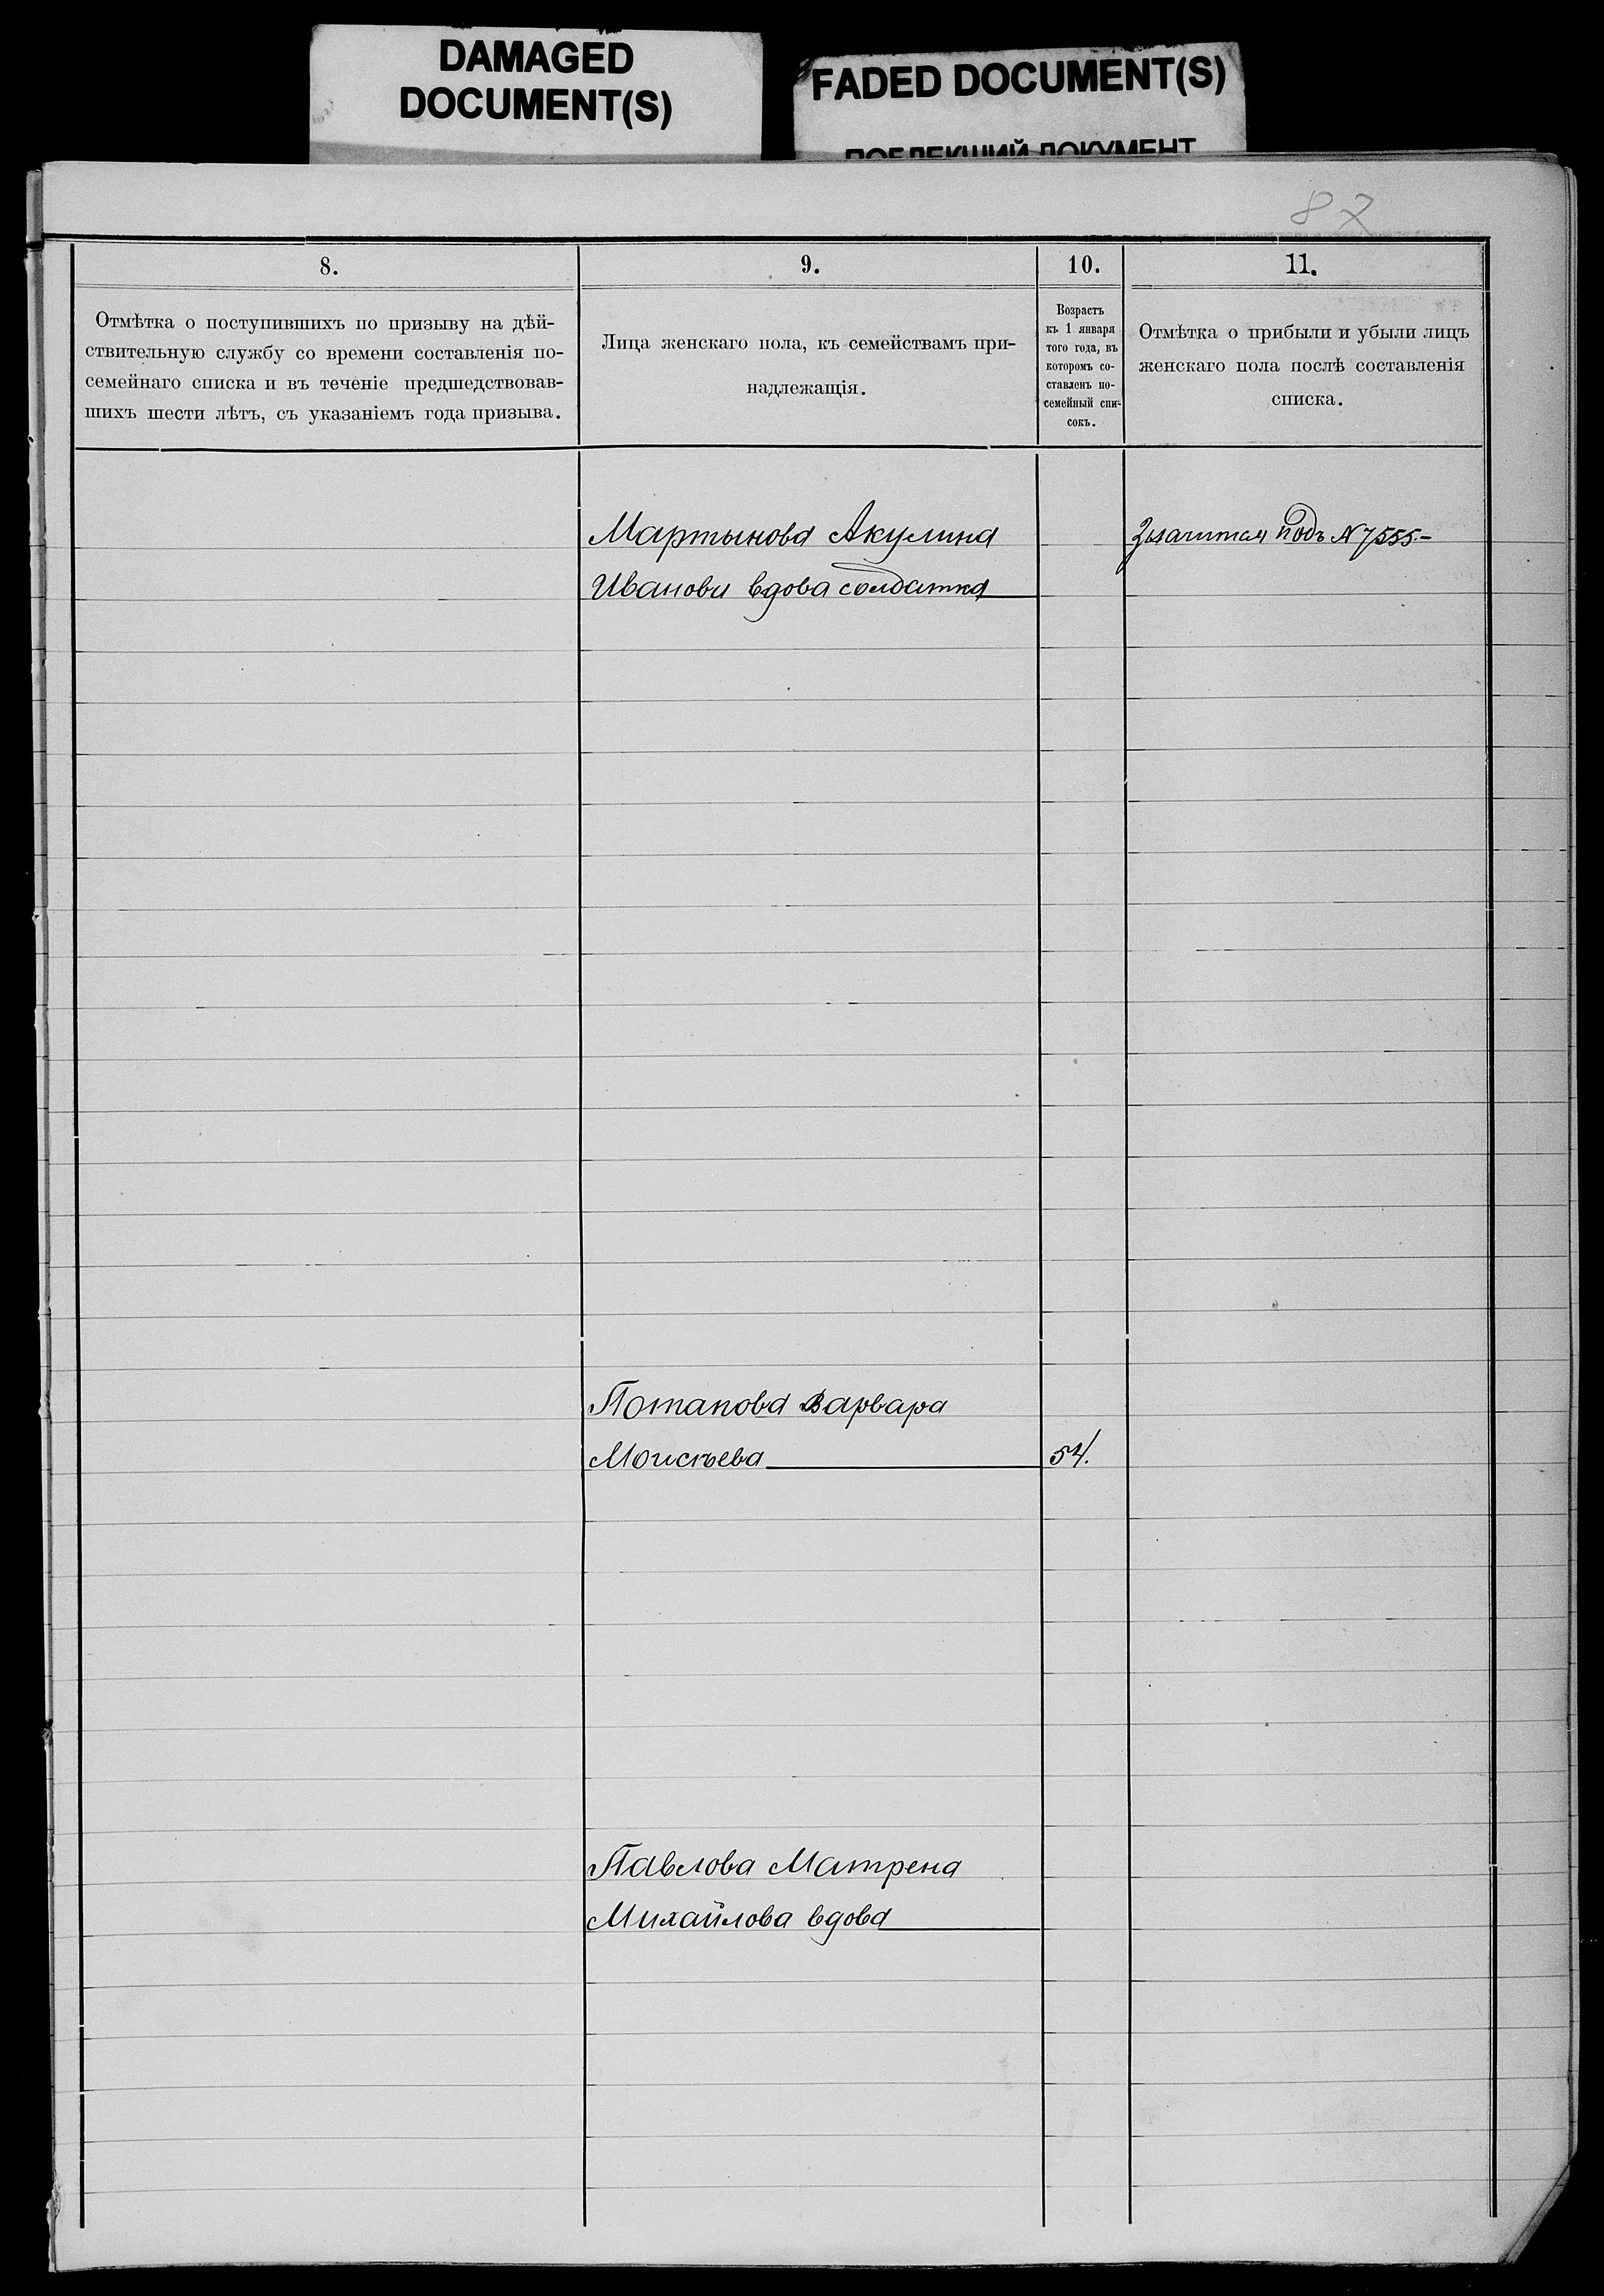 DAMAGED
DOCUMENT(S)
FADED DOCUMENT(S)
ПОБЛЕКШИЙ ДОКУМЕНТ
87
8.
9.
10.
11.
Отмѣтка о поступившихъ по призыву на дѣй-
ствительную службу со времени составленія по-
семейнаго списка и въ теченіе предшедствовав-
шихъ шести лѣтъ, съ указаніемъ года призыва.
Лица женскаго пола, къ семействамъ при-
надлежащія.
Возрастъ
къ 1 января
того года, въ
которомъ со-
ставленъ по-
семейный спи-
сокъ.
Отмѣтка о прибыли и убыли лицъ
женскаго пола послѣ составленія
списка.
Мартынова Акулина
Значится подъ № 7555.-
Иванова вдова солдатка
Потапова Варвара
Моисѣева 54.
Павлова Матрена
Михайлова вдова